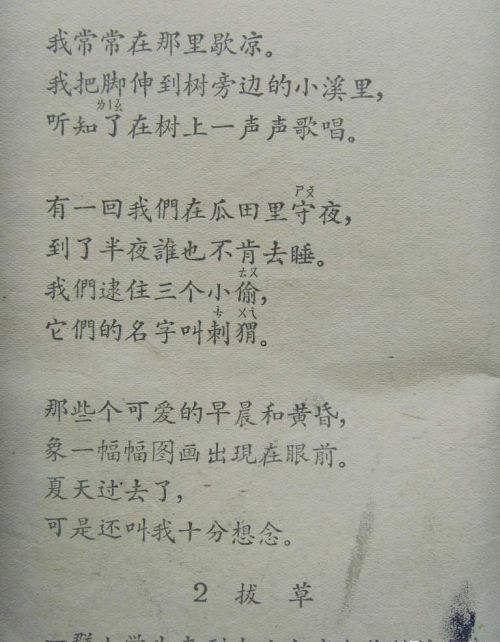 我常常在那里歇凉。
我把脚伸到树旁边的小溪里,
ㄌㄧㄠ
听知了在树上一声声歌唱。
ㄕㄡ
有一回我們在瓜田里守夜,
到了半夜誰也不肯去睡。
ㄊㄡ
我們逮住三个小偷,
ㄘ ㄨㄟ
它們的名字叫刺猬。
那些个可爱的早晨和黄昏,
象一幅幅图画出現在眼前。
夏天过去了,
可是还叫我十分想念。
2 拔 草